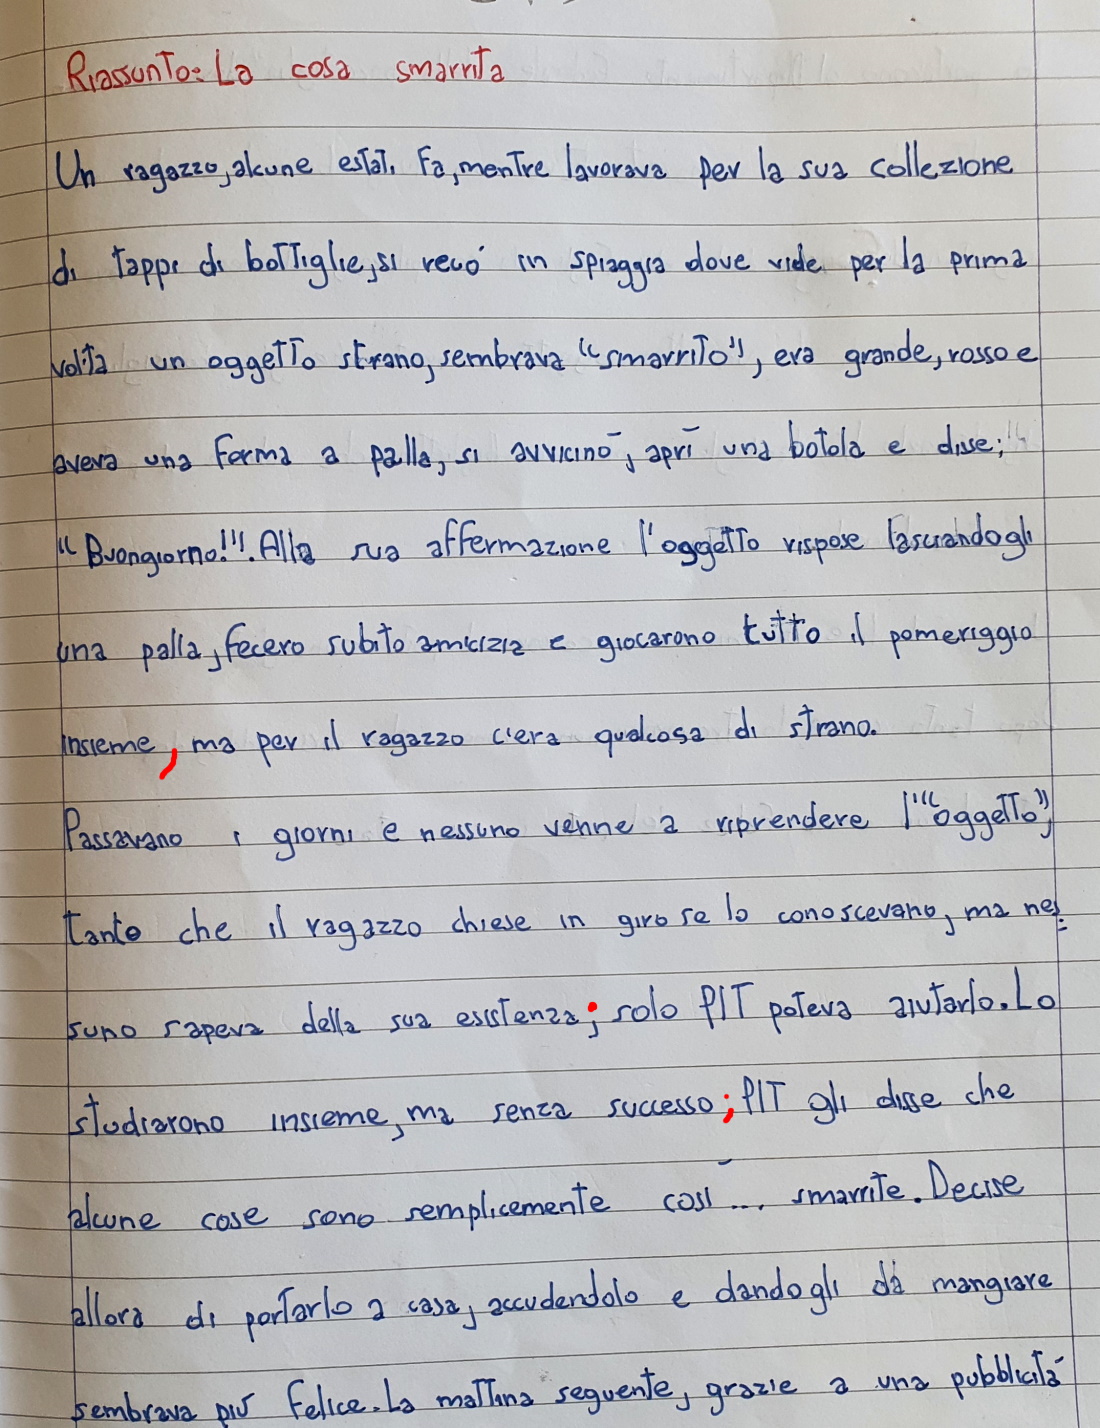 Riassunto: La cosa smarrita
Un ragazzo, alcune estati fa, mentre lavorava per la sua collezione
di tappi di bottiglie, si recò in spiaggia dove vide per la prima
volta un oggetto strano, sembrava "smarrito", era grande, rosso e
aveva una forma a palla, si avvicinò, aprì una botola e disse;
"Buongiorno!". Alla sua affermazione l'oggetto rispose lasciandogli
una palla, fecero subito amicizia e giocarono tutto il pomeriggio
insieme, ma per il ragazzo c'era qualcosa di strano.
Passavano i giorni e nessuno venne a riprendere l'"oggetto",
tanto che il ragazzo chiese in giro se lo conoscevano, ma nes
suno sapeva della sua esistenza; solo PIT poteva aiutarlo. Lo
studiarono insieme, ma senza successo; PIT gli disse che
alcune cose sono semplicemente così... smarrite. Decise
allora di portarlo a casa, accudendolo e dandogli da mangiare
sembrava più felice. La mattina seguente, grazie a una pubblicità